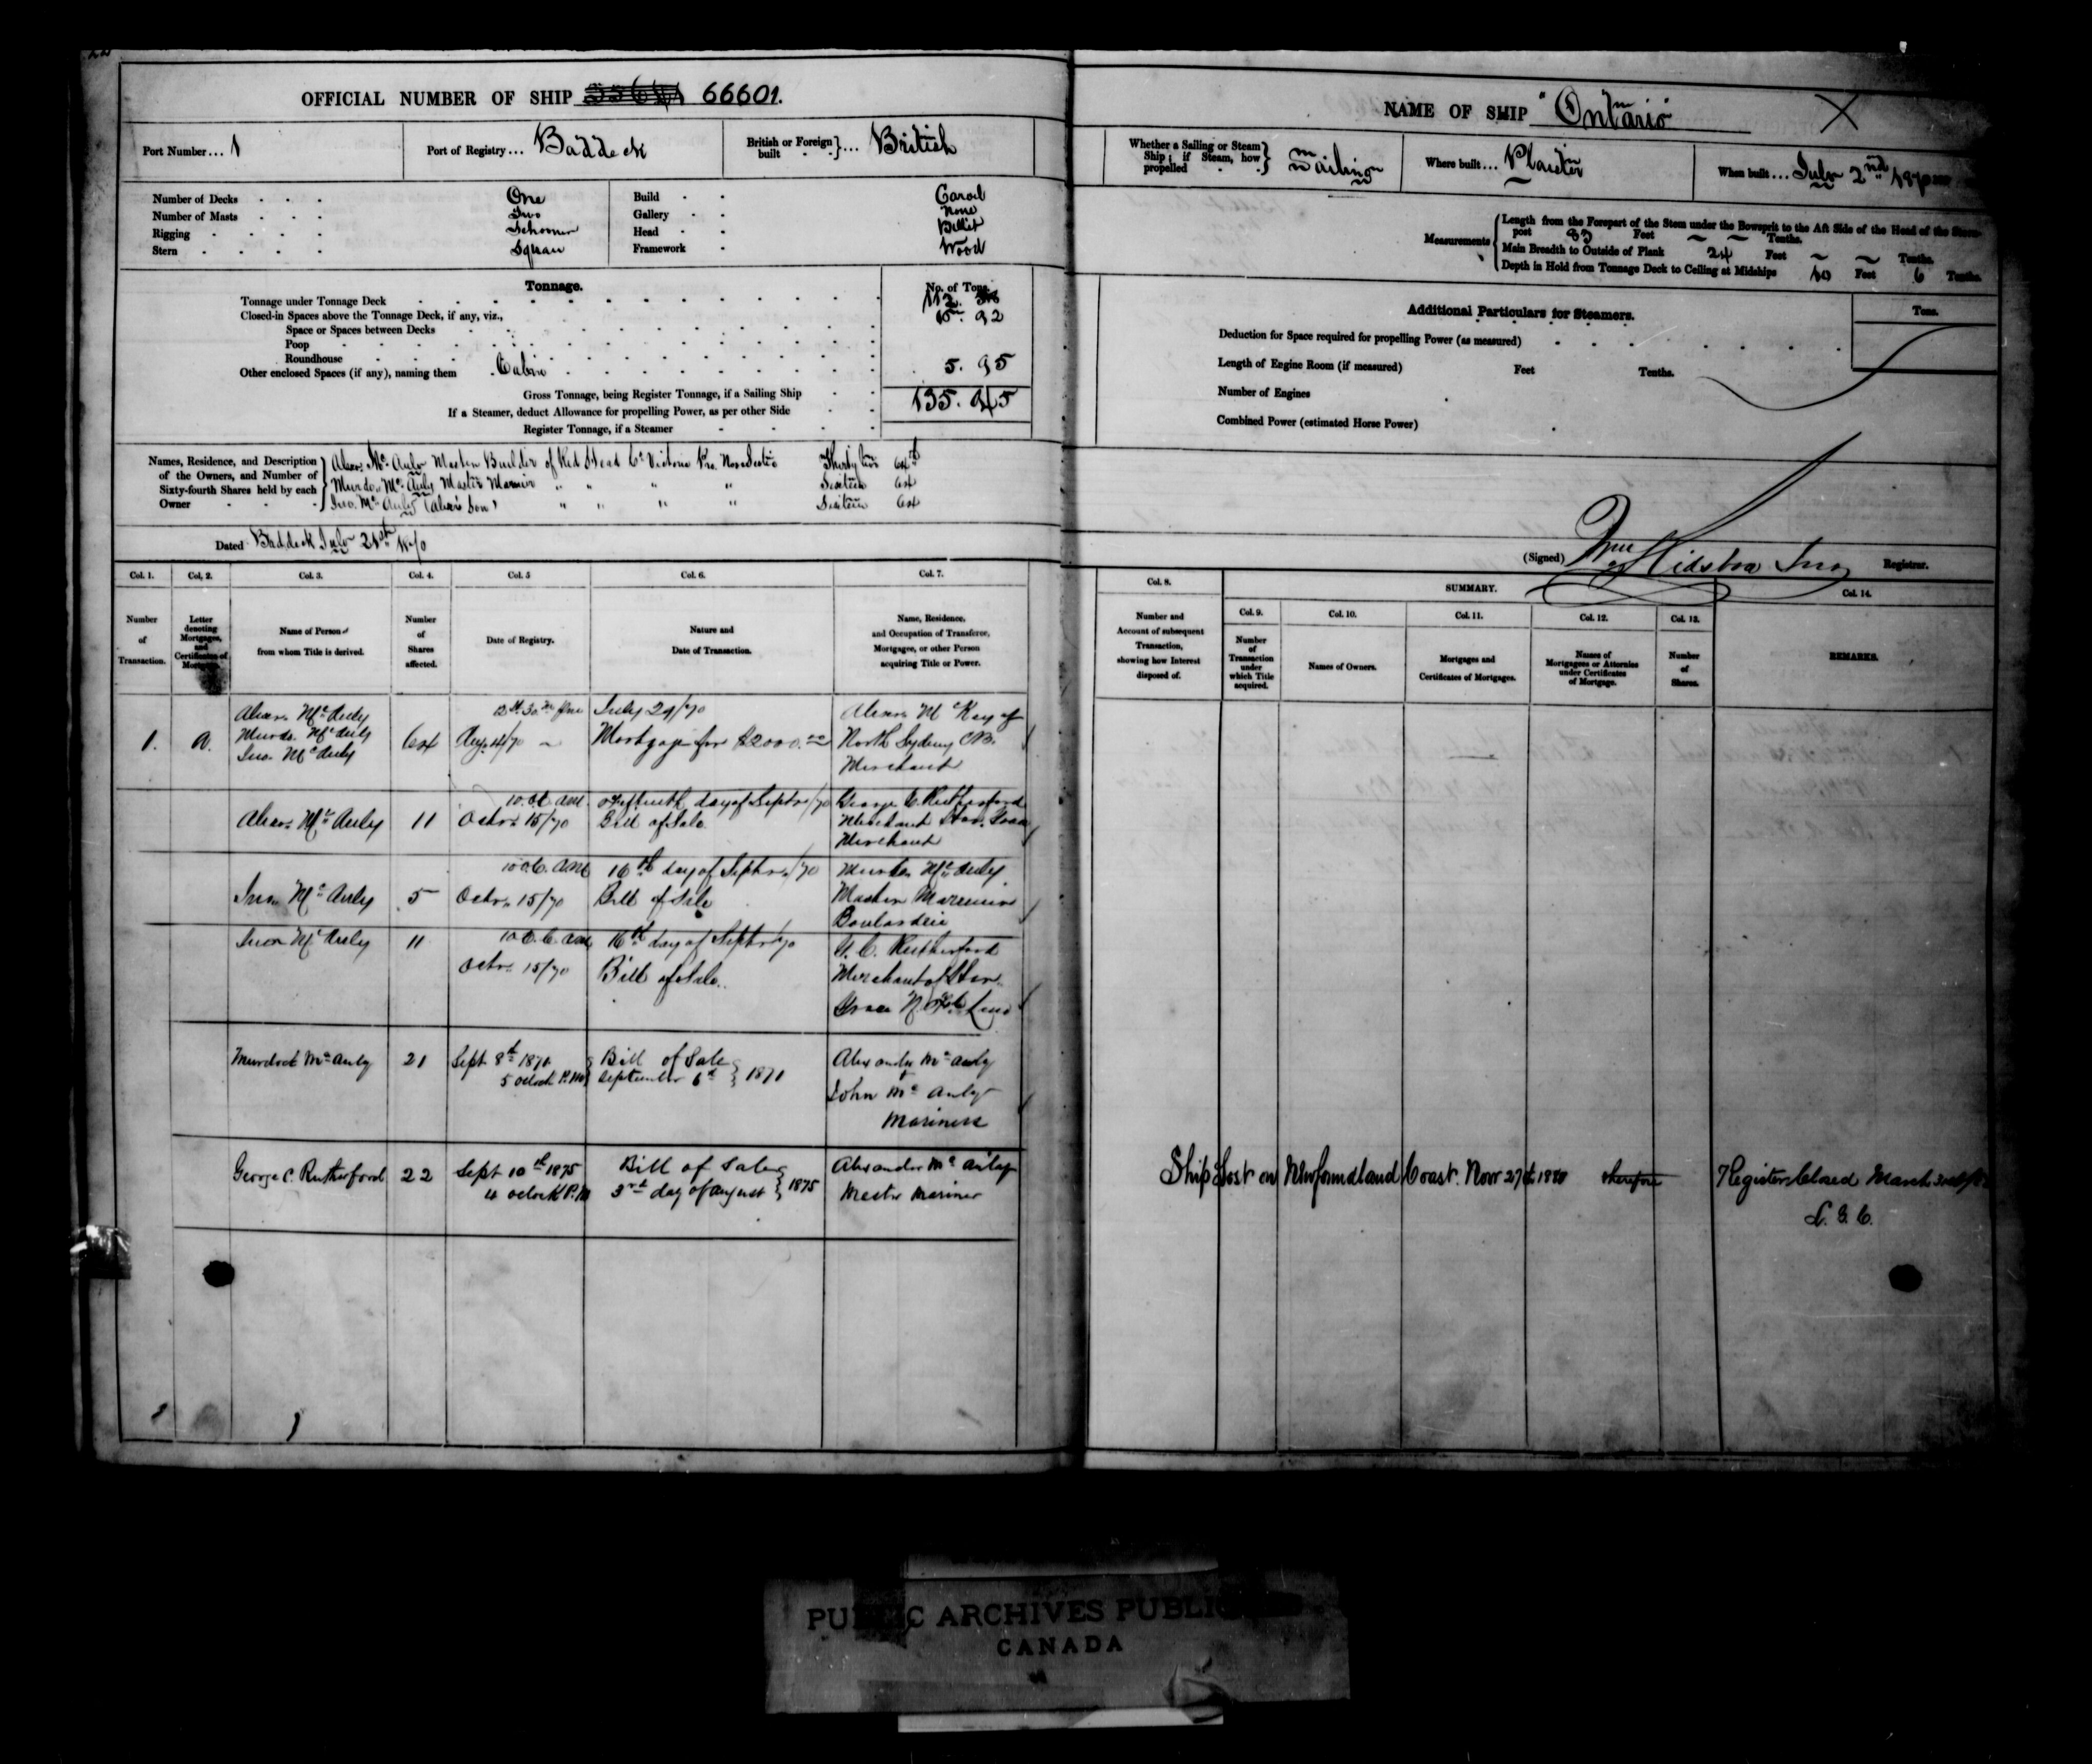 OFFICIAL NUMBER OF SHIP 66601.
Port Number... 1 Port of Registry... Baddeck British or Foreign built }... British
Number of Decks One Build Carvel
Number of Masts Two Gallery None
Rigging Schooner Head Billet
Stern Square Framework Wood
Tonnage. No. of Tons.
Tonnage under Tonnage Deck 112.
Closed-in Spaces above the Tonnage Deck, if any, viz.,
Space or Spaces between Decks
Poop
Roundhouse
Other enclosed Spaces (if any), naming them Cabin 5. 95
Gross Tonnage, being Register Tonnage, if a Sailing Ship 135. 45
If a Steamer, deduct Allowance for propelling Power, as per other Side
Register Tonnage, if a Steamer
Names, Residence, and Description of the Owners, and Number of Sixty-fourth Shares held by each Owner
Alexr. Mc Auly Master Builder of Red Head Co. Victoria Pro. Nova Scotia Thirty two 64th
Murdo. Mc Auly Master Mariner " " " " Sixteen 64
Jno. Mc Auly (Alexr's Son) " " " " Sixteen 64
Dated Baddeck July 21st 1870
Col. 1. Col. 2. Col. 3. Col. 4. Col. 5 Col. 6. Col. 7.
Number of Transaction.
Letter denoting Mortgages, and Certificates of Mortgage.
Name of Person from whom Title is derived.
Number of Shares affected.
Date of Registry.
Nature and Date of Transaction.
Name, Residence, and Occupation of Transferee, Mortgagee, or other Person acquiring Title or Power.
1. A. Alexr. Mc Auly
Murdo. Mc Auly
Jno. Mc Auly
64 Augt 14/70
July 29/70
Mortgage for $2000.00
Alexr. McKay of
North Sydney C.B.
Merchant
Alexr. Mc Auly 11 10 o.C. AM.
Octr. 15/70
day of Septr /70
Bill of Sale
George C. Rutherford
Merchant
Merchant
Jno. Mc Auly 5 10 o.C. AM
Octr. 15/70
16th day of Septr. /70
Bill of Sale
Murdo. Mc Auly
Master Mariner
Boulardrie
Jno. Mc Auly 11 10 o.C. AM
Octr. 15/70
16th day of Septr /70
Bill of Sale.
G. C. Rutherford
Merchant of Har.
Grace
Murdock Mc Auly 21 Sept 8th 1871
5 oclock P.M.
Bill of Sale
September 6th } 1871
Alexander Mc Auly
John Mc Auly
Mariners
George C. Rutherford 22 Sept 10th 1875
4 oclock P.M
Bill of Sale
3rd day of August } 1875
Alexander Mc Aulay
Master Mariner
NAME OF SHIP "Ontario"
Whether a Sailing or Steam Ship; if Steam, how propelled } Sailing Where built... Plaister When built... July 2nd 1870
Measurements { Length from the Forepart of the Stem under the Bowsprit to the Aft Side of the Head of the Stern-
post Feet Tenths.
Main Breadth to Outside of Plank 24 Feet Tenths.
Depth in Hold from Tonnage Deck to Ceiling at Midships 10 Feet 6 Tenths.
Additional Particulars for Steamers. Tons.
Deduction for Space required for propelling Power (as measured)
Length of Engine Room (if measured) Feet Tenths.
Number of Engines
Combined Power (estimated Horse Power)
(Signed) Wm Registrar.
Col. 8. SUMMARY. Col. 14.
Col. 9. Col. 10. Col. 11. Col. 12. Col. 13.
Number and Account of subsequent Transaction, showing how Interest disposed of.
Number of Transaction under which Title acquired.
Names of Owners.
Mortgages and Certificates of Mortgages.
Names of Mortgagees or Attornies under Certificates of Mortgage.
Number of Shares.
REMARKS.
Ship Lost on Newfoundland Coast. Novr 27th 1880 therefore Register Closed March
PUBLIC ARCHIVES PUBLI
CANADA